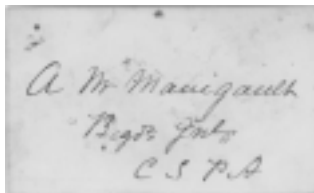 A M Manigault
Brigdr Genl
C S P A